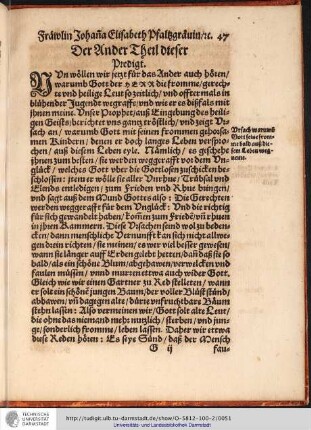 Fräwlin Johañа Elisabeth Pfaltzgräuin/ꝛc. 47
Der Ander Theil dieser
Predigt.
NVn wöllen wir jetzt für das Ander auch hören/
warumb Gott der HERR die fromme/gerech-
te vnd heilige Leut so zeitlich/vnd offtermals in
blühender Jugendt wegrafft/vnd wie er es dißfals mit
ihnen meine. Vnser Prophet/auß Eingebung des heili-
gen Geists/berichtet vns gang tröstlich/vnd zeigt Vr-
sach an/warumb Gott mit seinen frommen gehorsa-
men Kindern/denen er doch langes Leben verspro-
chen/auß diesem Leben eyle. Nämlich/es geschehe
ihnen zum besten/sie werden weggerafft vor dem Vn-
glück/welches Gott vber die Gottlosen zuschicken be-
schlossen: jtem er wölle sie aller Vnrhue/Trübsal vnd
Elends entledigen/zum Frieden vnd Rhue bringen/
vnd sagt auß dem Mund Gottes also: Die Gerechten
werden weggerafft für dem Vnglück: Vnd die richtig
für sich gewandelt haben/kom̃en zum Friede/vñ rhuen
in ihren Kammern. Diese Vrsachen seind wol zu beden-
cken/dann menschliche Vernunfft kan sich nicht allwe-
gen drein richten/sie meinet/es wer viel besser gewesen/
wann sie länger auff Erden gelebt hetten/dañ daß sie so
bald/als ein schöne Blum/abgehawen/verwelcken vnd
faulen müssen/vnnd murren etwa auch wider Gott.
Gleich wie wir einen Gartner zu Red stelleten/wann
er solt ein schöne jungen Baum/der voller Blüst stünd/
abhawen/vñ dagegen alte/dürre vnfruchtbare Bäum
stehn lassen: Also vermeinen wir/Gott solt alte Leut/
die ohne das niemand mehr nutzlich/sterben/vnd jun-
ge/sonderlich fromme/leben lassen. Daher wir etwa
diese Reden hören: Es seye Sünd/daß der Mensch
G ij
fau-
Vrsach warumb
Gott seine from-
me bald auß die-
sem Leben weg-
neme.
TECHNISCHE
UNIVERSITÄT
DARMSTADT
http://tudigit.ulb.tu-darmstadt.de/show/O-5812-300-2/0051
Universitäts- und Landesbibliothek Darmstadt